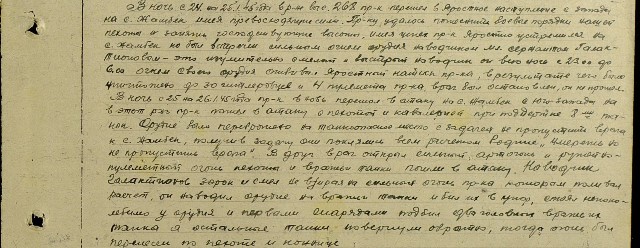 В ночь с 24 на 25.1.45 года в р-не выс. 268 пр-к перешел в яростное наступление с запада
на с. Жамбек имея превосходящие силы. Пр-ку удалось потеснить боевые порядки нашей
пехоты и занять господствующие высоты, имея успех пр-к яростно устремился на
с. Жамбек но был встречен сильным огнем орудия наводчиком мл. сержантом Галак-
тионовым - это изумительно смелый и быстрый наводчик он всю ночь с 22.00 до
6.00 огнем своего орудия отбивал яростной натиск пр-ка, в результате чего было
уничтожено до 30 гитлеровцев и 4 пулемета пр-ка, враг был остановлен, он не прошел.
В ночь с 25 на 26.1.45 года пр-к вновь перешел в атаку на с. Жамбек с юго-запада на
в этот раз пр-к пошел в атаку с пехотой и кавалерией при поддержке 8-ми тан-
ков. Орудие было переброшено на танкоопасное место с задачей не пропустить врага
к с. Жамбек, получив задачу они поклялись всем расчетом Родине „Умереть но
не пропустить врага". И вдруг враг открыл сильный артогонь и ружейно-
пулеметный огонь пехоты и вражьи танки пошли в атаку. Наводчик
Галактионов зорок и смел не взирая на сильный огонь пр-ка которым поливал
расчет, он наводил орудие на вражьи танки и бил их в упор, стоял непоко-
лебимо у орудия и первыми снарядами подбил два головных вражеских
танка а остальные танки повернули обратно, тогда огонь был
перенесен по пехоте и коннице